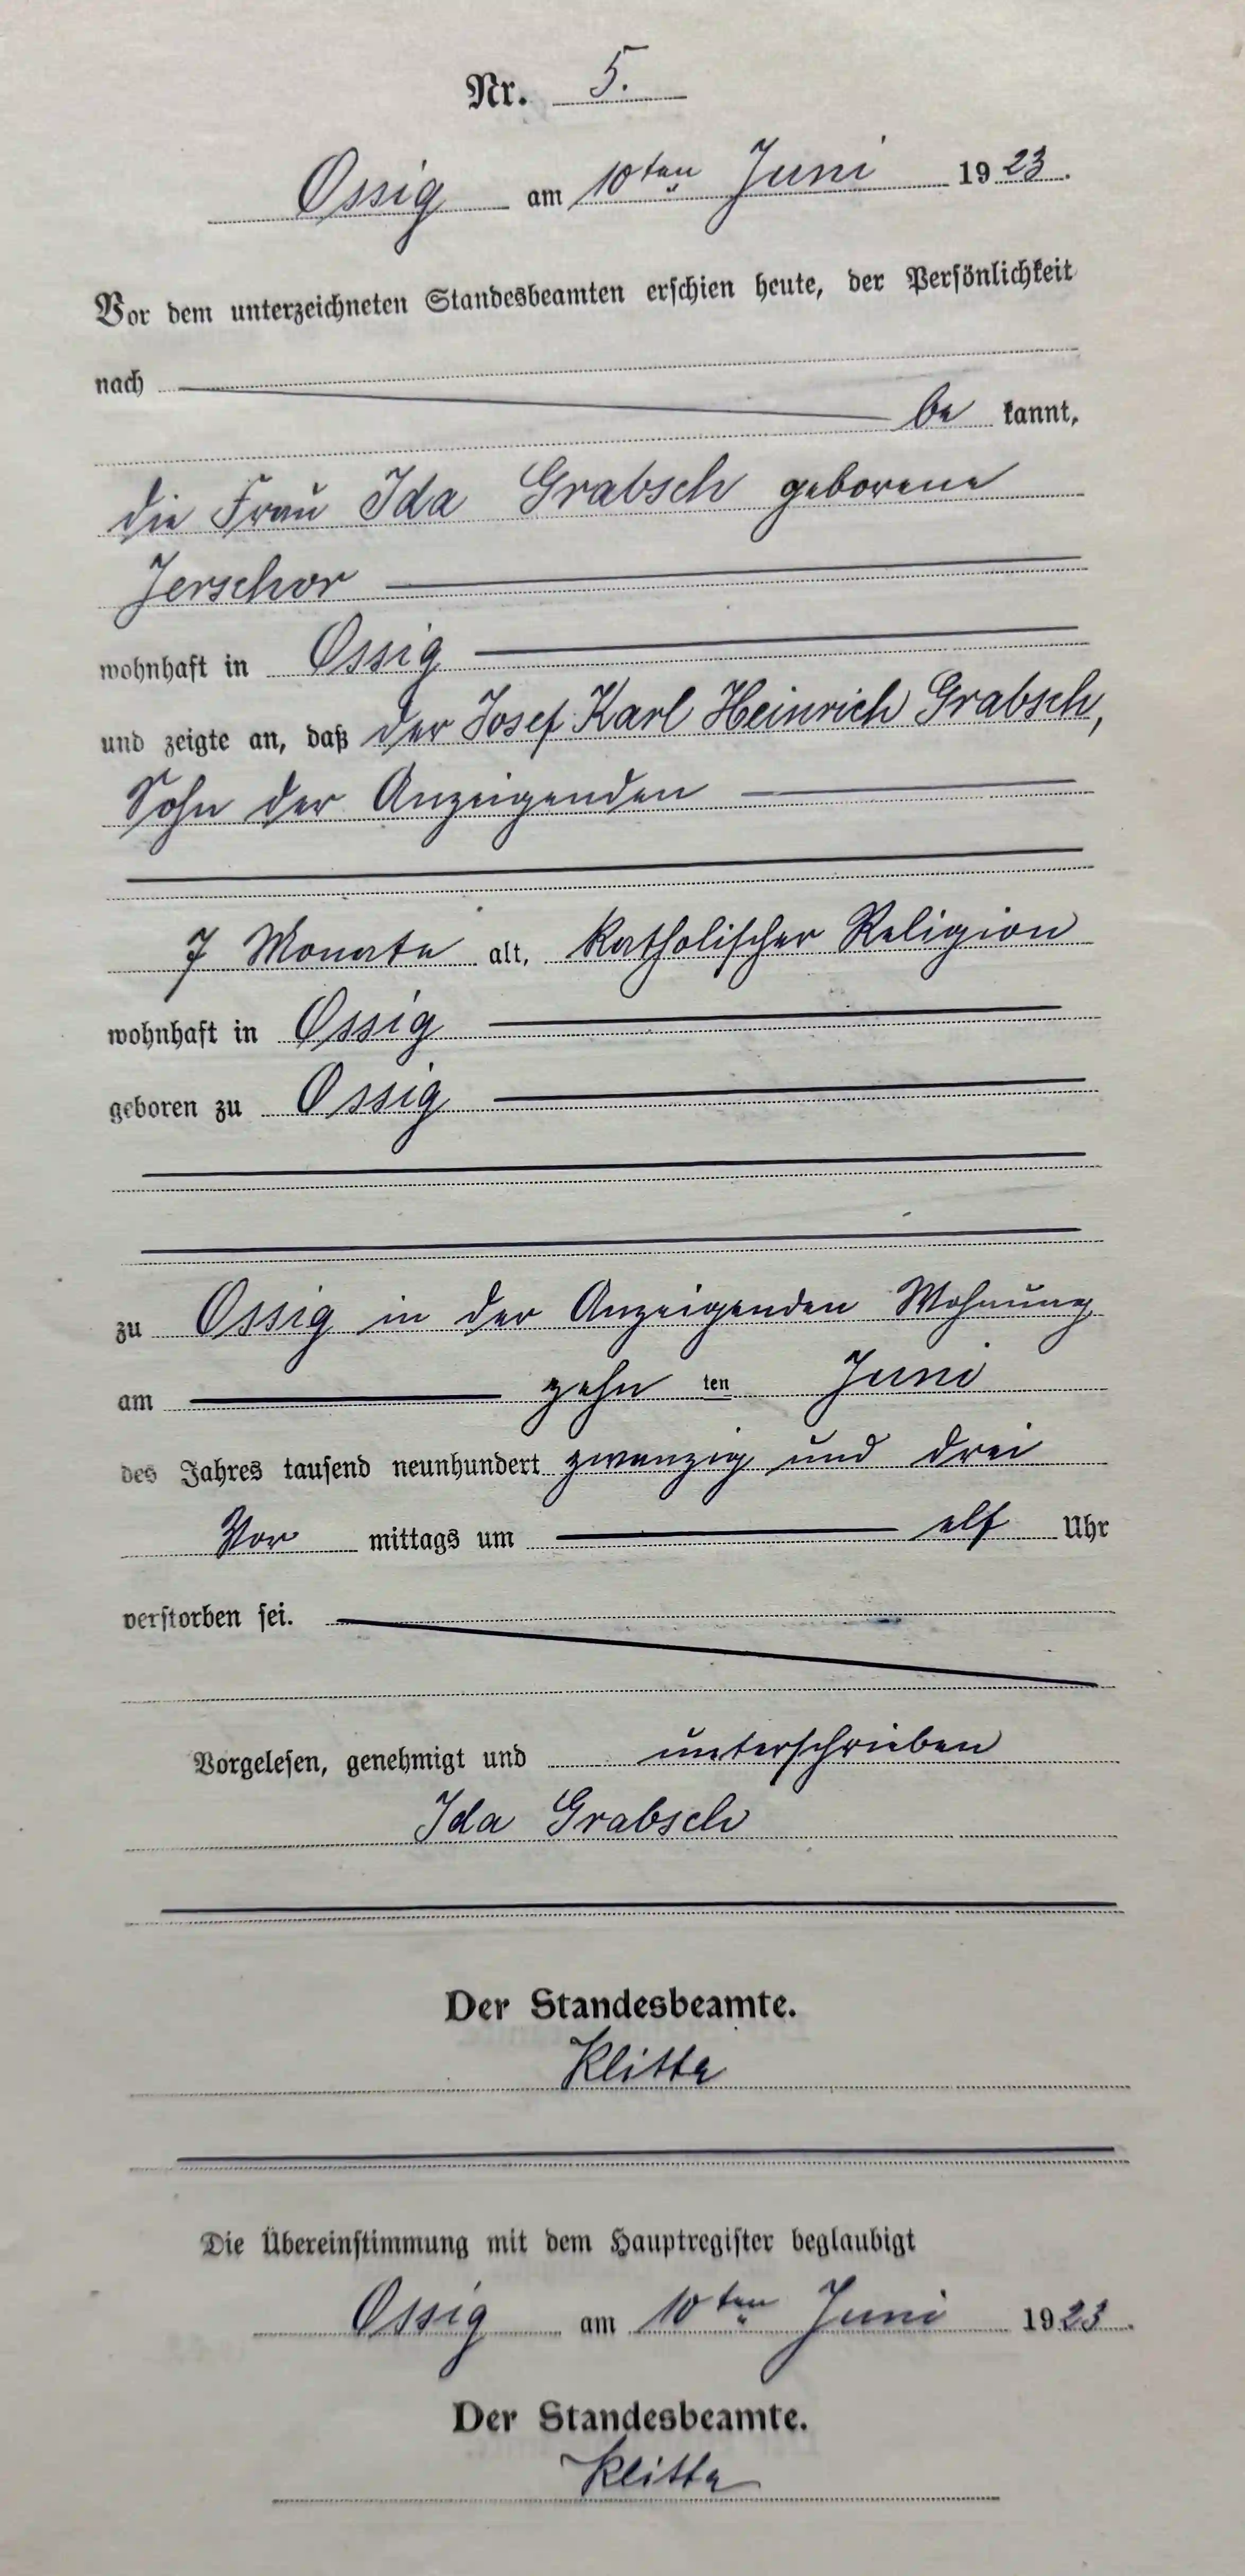 Nr. 5.
Ossig am 10ten Juni 1923.
Vor dem unterzeichneten Standesbeamten erschien heute, der Persönlichkeit
nach
be kannt,
die Frau Ida Grabsch geborene
Jerschor
wohnhaft in Ossig
und zeigte an, daß der Josef Karl Heinrich Grabsch,
Sohn der Anzeigenden
7 Monate alt, katholischer Religion
wohnhaft in Ossig
geboren zu Ossig
zu Ossig in der Anzeigenden Wohnung
am zehn ten Juni
des Jahres tausend neunhundert zwanzig und drei
Vor mittags um elf Uhr
verstorben sei.
Vorgelesen, genehmigt und unterschrieben
Ida Grabsch
Der Standesbeamte.
Klitte
Die Übereinstimmung mit dem Hauptregister beglaubigt
Ossig am 10ten Juni 1923.
Der Standesbeamte.
Klitte